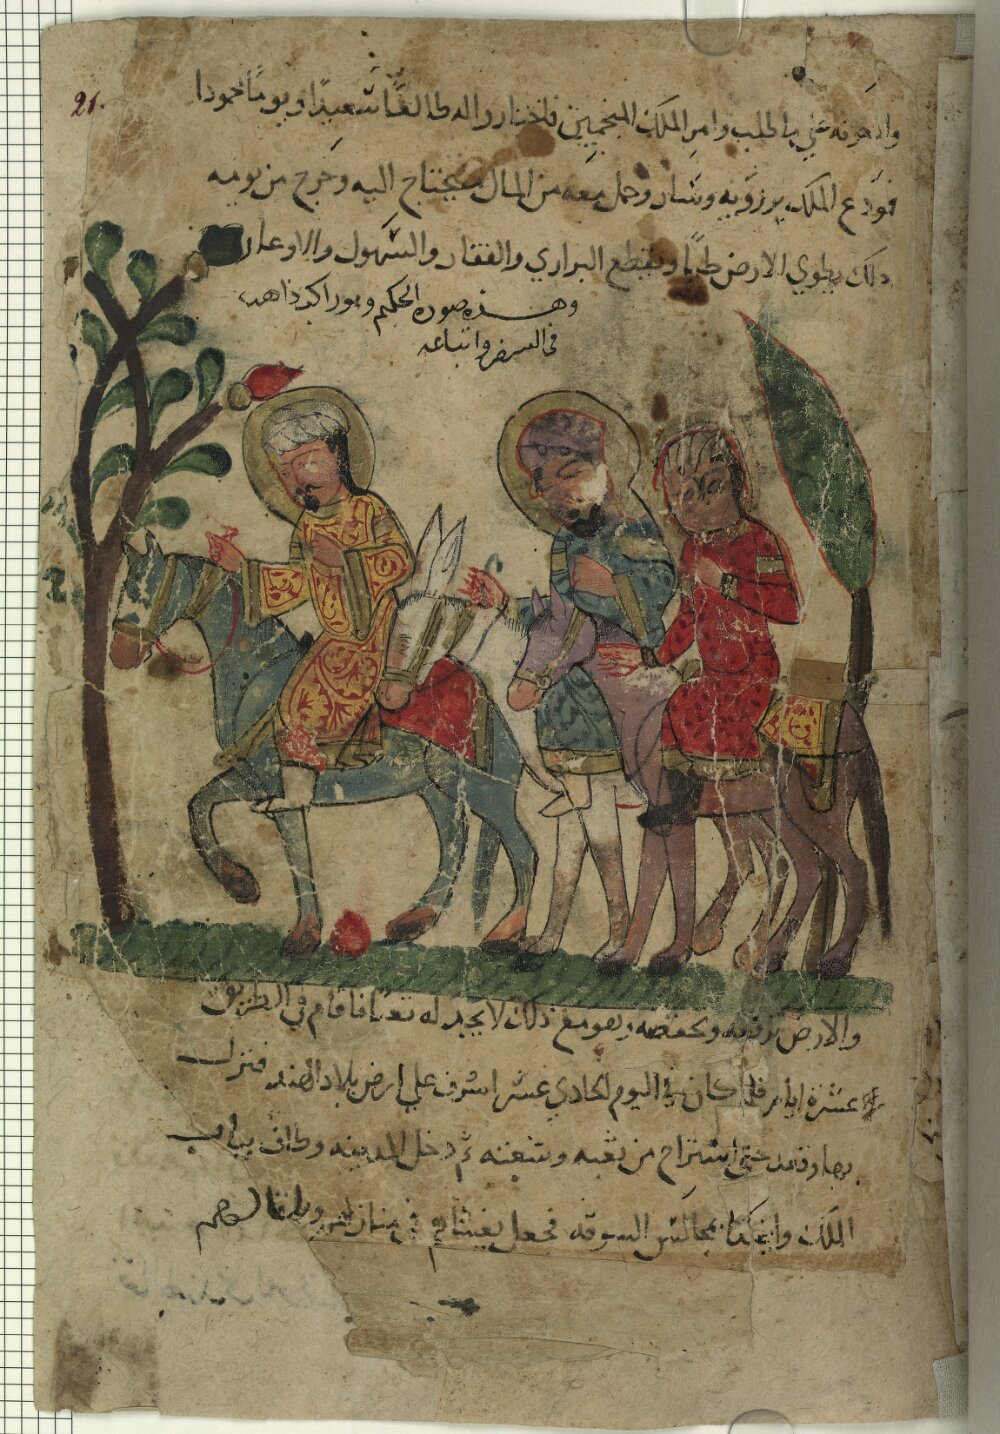 21.
واحرفه علي بالطلب وامر الملك المنجمين فاختاروا له طالعا سعيدا ويوما محمودا
فودع الملك برزويه وسار وحمل معه من المال ما يحتاج اليه وخرج من يومه
ذلك يطوي الارض طيا ويقطع البراري والقفار والسهول والاوعار
وهذه صورة الحكيم وهو راكب ذاهب
في السفر واتباعه
والارض ترفعه وتخفضه وهو مع ذلك لا يجد له تعبا فاقام في الطريق
عشرة ايام فلما كان في اليوم الحادي عشر اشرف علي ارض بلاد الهند فنزل
بها وقعد حتى استراح من تعبه وشعثه ثم دخل المدينه وطاف بباب
الملك بمجالس السوقه فجعل يغشاهم في منازلهم ويلقا